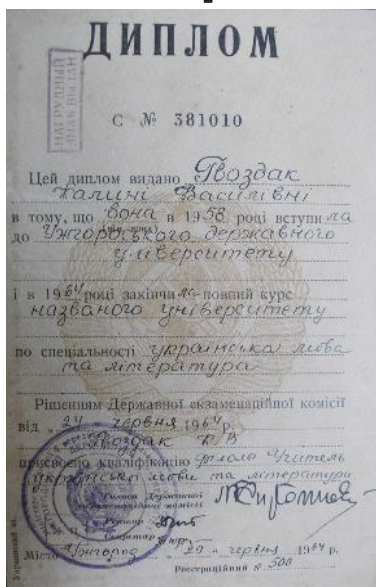 ДИПЛОМ
НАГРУДНЫЙ
ЗНАК ВЫДАН
С № 381010
Цей диплом видано Гвоздак
Галині Василівні
в тому, що вона в 1958 році вступила
(він, вона)
до Ужгородського державного
університету
і в 1964 році закінчила повний курс
названого університету
по спеціальності українська мова
та література
Рішенням Державної екзаменаційної комісії
від „24 червня 1964 р.
Гвоздак Г. В.
присвоєно кваліфікацію філолог Учитель
української мови та літератури
Голова Державної
екзаменаційної комісії
Ректор
Секретар
Місто Ужгород „ 29 „ червня 1964 р.
Реєстраційний № 500